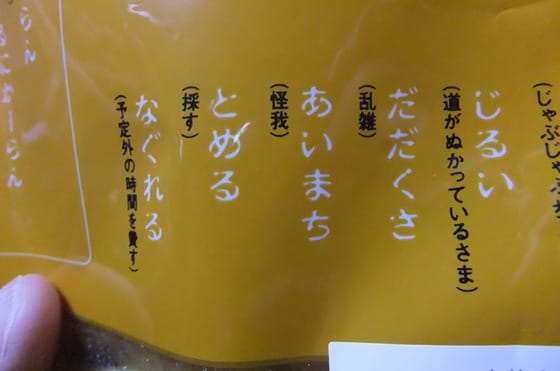 (じゃぶじゃぶ
じるい
(道がぬかっているさま)
だだくさ
(乱雑)
あいまち
(怪我)
とめる
(採す)
なぐれる
(予定外の時間を費す)
らん